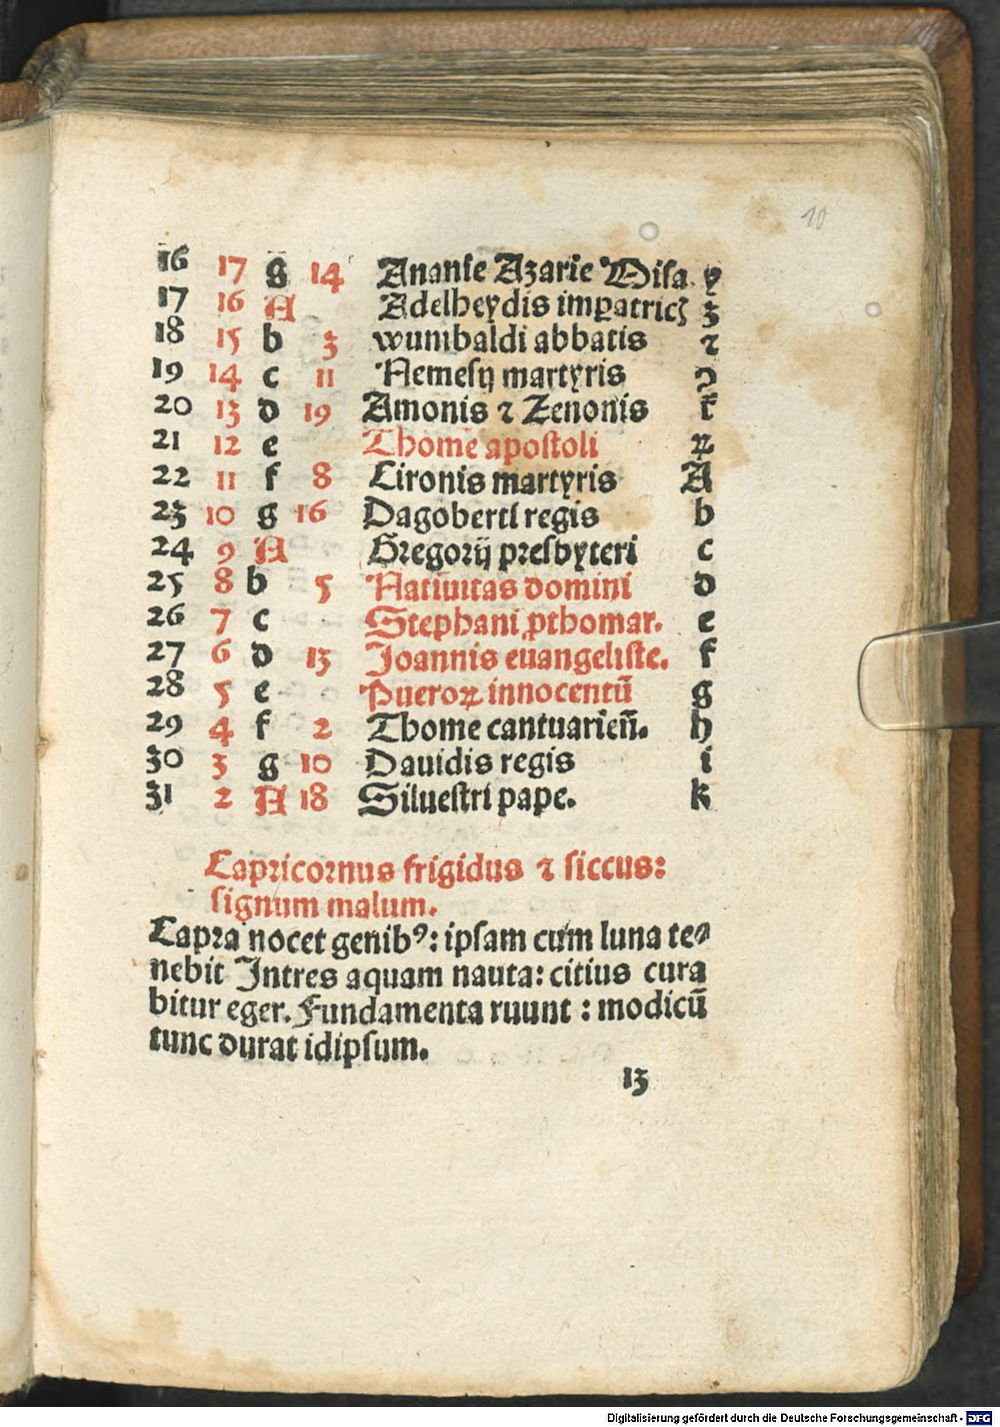 10
16 17 g 14 Ananie Azarie Misa. y
17 16 A Adelheydis imꝑatricꝫ ʒ
18 15 b 3 wunibaldi abbatis ⁊
19 14 c 11 Nemesij martyris ꝯ
20 13 d 19 Amonis ⁊ Zenonis
21 12 e Thome apostoli
22 11 f 8 Cironis martyris A
23 10 g 16 Dagoberti regis b
24 9 A Gregorij presbyteri c
25 8 b 5 Natiuitas domini d
26 7 c Stephani ꝓthomar. e
27 6 d 13 Joannis euangeliste. f
28 5 e Pueroꝝ innocentū g
29 4 f 2 Thome cantuarieñ. h
30 3 g 10 Dauidis regis i
31 2 A 18 Siluestri pape. k
Capricornus frigidus ⁊ siccus:
signum malum.
Capra nocet genibꝰ: ipsam cum luna te⸗
nebit Intres aquam nauta: citius cura
bitur eger. Fundamenta ruunt : modicū
tunc durat idipsum.
13
Digitalisierung gefördert durch die Deutsche Forschungsgemeinschaft - DFG